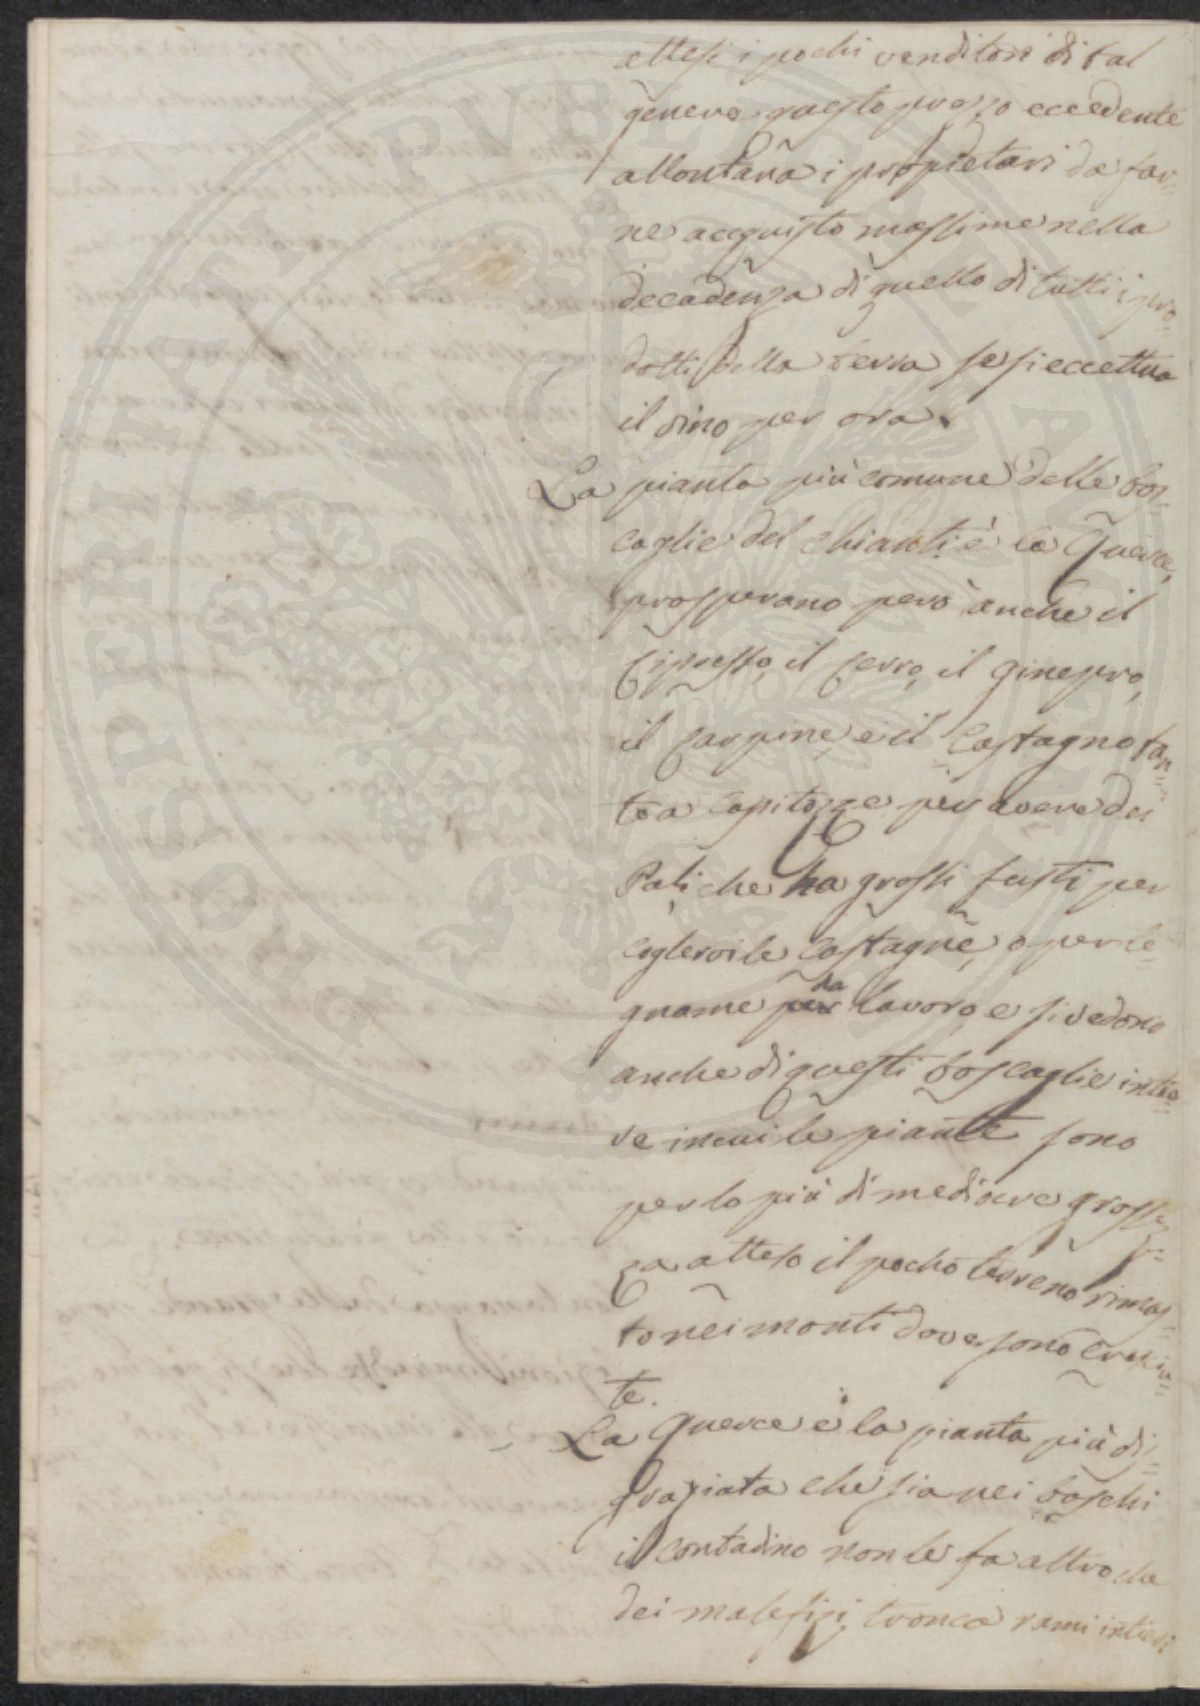 attesi i pochi venditori di tal
genere questo prezzo eccedente
allontana i proprietari da far=
ne acquisto massime nella
decadenza di quello di tutti i pro=
dotti della terra se si eccettua
il vino per ora.
La pianta più comune delle bos=
caglie del Chianti è la Querce,
prosperano però anche il
Cipresso, il Cerro, il Ginepro,
il Carpine, e il Castagno tan=
to a capitozze per avere dei
Pali che ha grossi fusti per
coglervi le Castagne, o per le=
gname per da lavoro, e si vedono
anche di questi boscaglie intie=
re in cui le piante sono
per lo più di mediocre grossez=
za atteso il pocho terreno rimas=
to nei monti dove sono cresciu=
te.
La Querce è la pianta più di=
sgraziata che sia nei boschi
il contadino non le fa altro che
dei malefizi, tronca rami intieri
PROSPERITATI PVBLICAE